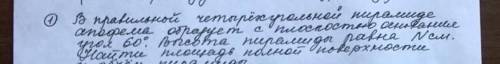 ① В правильной четырёхугольной пирамиде
апофема образует с плоскостью основания
угол 60°. Высота пирамиды равна см.
Найти площадь полной поверхности
пирамиды